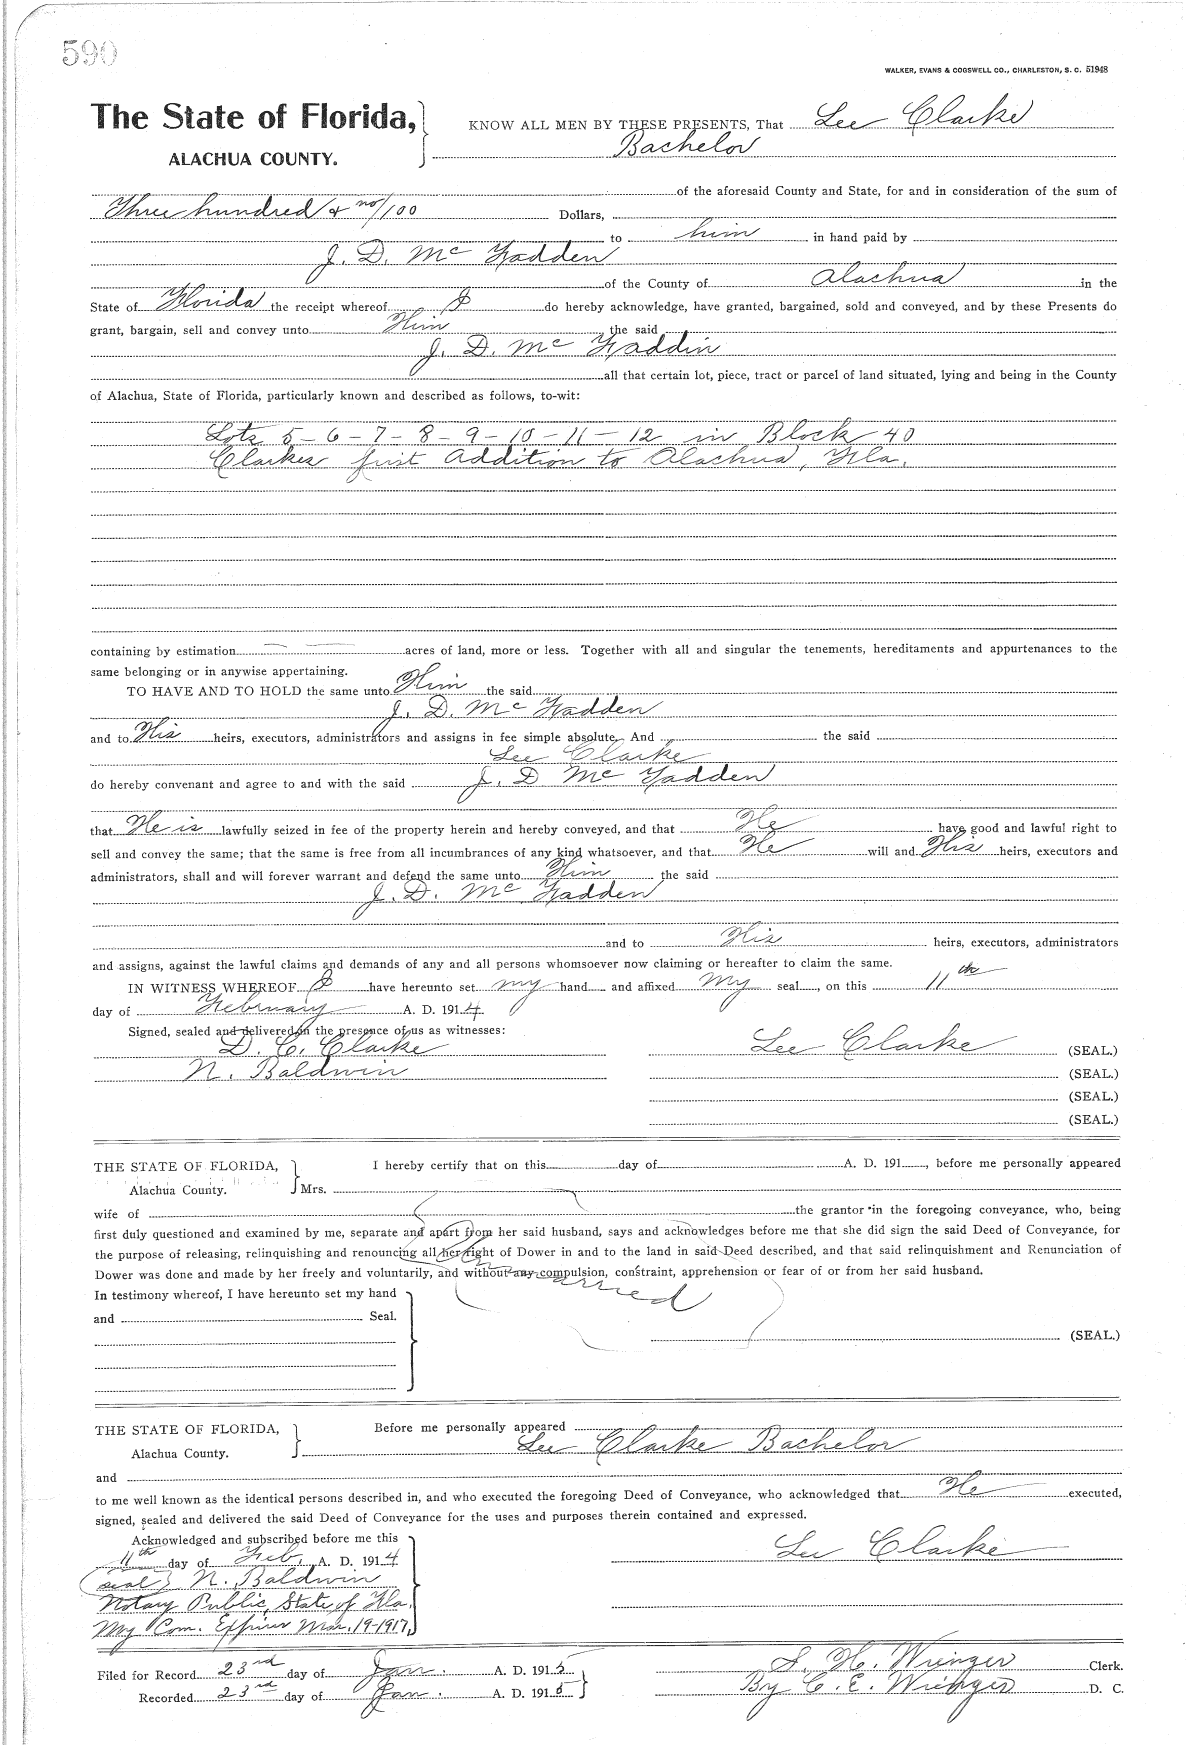 590
WALKER, EVANS & COGSWELL CO., CHARLESTON, S. C. 51948
The State of Florida,
ALACHUA COUNTY.
KNOW ALL MEN BY THESE PRESENTS, That Lee Clarke
Bachelor
of the aforesaid County and State, for and in consideration of the sum of
Three hundred & no/100 Dollars,
to him in hand paid by
J. D. Mc Fadden
of the County of Alachua in the
State of Florida the receipt whereof I do hereby acknowledge, have granted, bargained, sold and conveyed, and by these Presents do
grant, bargain, sell and convey unto Him the said
J. D. Mc Faddin
all that certain lot, piece, tract or parcel of land situated, lying and being in the County
of Alachua, State of Florida, particularly known and described as follows, to-wit:
Lots 5-6-7-8-9-10-11-12 in Block 40
Clarkes first Addition to Alachua, Fla.
containing by estimation acres of land, more or less. Together with all and singular the tenements, hereditaments and appurtenances to the
same belonging or in anywise appertaining.
TO HAVE AND TO HOLD the same unto Him the said
J. D. Mc Fadden
and to His heirs, executors, administrators and assigns in fee simple absolute. And the said
Lee Clarke
do hereby convenant and agree to and with the said J. D Mc Fadden
that He is lawfully seized in fee of the property herein and hereby conveyed, and that He have good and lawful right to
sell and convey the same; that the same is free from all incumbrances of any kind whatsoever, and that He will and His heirs, executors and
administrators, shall and will forever warrant and defend the same unto Him the said
J. D. Mc Fadden
and to His heirs, executors, administrators
and assigns, against the lawful claims and demands of any and all persons whomsoever now claiming or hereafter to claim the same.
IN WITNESS WHEREOF I have hereunto set my hand and affixed My seal, on this 11th
day of February A. D. 1914.
Signed, sealed and delivered in the presence of us as witnesses:
D. C. Clarke
N. Baldwin
Lee Clarke (SEAL.)
(SEAL.)
(SEAL.)
(SEAL.)
THE STATE OF FLORIDA,
Alachua County.
I hereby certify that on this day of A. D. 191, before me personally appeared
Mrs.
wife of the grantor in the foregoing conveyance, who, being
first duly questioned and examined by me, separate and apart from her said husband, says and acknowledges before me that she did sign the said Deed of Conveyance, for
the purpose of releasing, relinquishing and renouncing all her right of Dower in and to the land in said Deed described, and that said relinquishment and Renunciation of
Dower was done and made by her freely and voluntarily, and without any compulsion, constraint, apprehension or fear of or from her said husband.
In testimony whereof, I have hereunto set my hand
and Seal.
(SEAL.)
THE STATE OF FLORIDA,
Alachua County.
Before me personally appeared
Lee Clarke Bachelor
and
to me well known as the identical persons described in, and who executed the foregoing Deed of Conveyance, who acknowledged that He executed,
signed, sealed and delivered the said Deed of Conveyance for the uses and purposes therein contained and expressed.
Acknowledged and subscribed before me this
11th day of Feb, A. D. 1914
(seal) N. Baldwin
Notary Public, State of Fla.
My Com. Expires Mar. 19-1917.
Lee Clarke
Filed for Record 23rd day of Jan. A. D. 1915
Recorded 23rd day of Jan. A. D. 1915
S. H. Wienges Clerk.
By C. E. Wienges D. C.